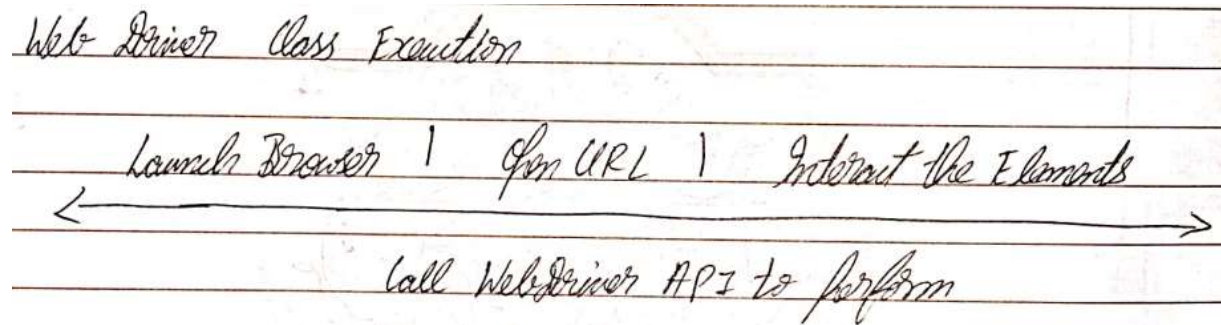 Web Driver Class Execution
Launch Browser | Open URL | Interact the Elements
Call WebDriver API to perform